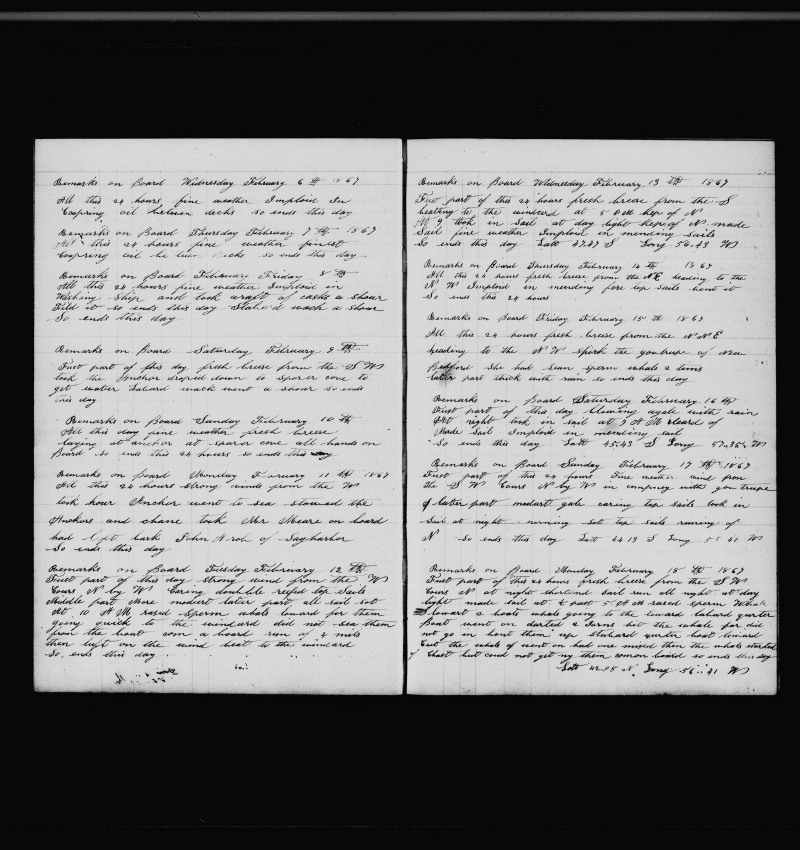 Remarks on Board Widnesday February 6 th 1867
All this 24 hours fine weather Imploid In
Coopring oil betwen decks so ends this day
Remarks on Board Thursday February 7 th 1867
All this 24 hours fine weather
Coopring oil be twen decks so ends this day
Remarks on Board February Friday 8 th
All this 24 hours fine weather Imploid in
Washing Ship and took a raft of casks a shour
Fild it so ends this day Stabord wach a shour
So ends this day
Remarks on Board Saturday February 9 th
First part of this day fresh breese from the S W
took the Anchor droped down to sporer cove to
get water Labard wach went a shour so ends
this day
Remarks on Board Sunday February 10 th
All this day fine weather fresh breese
laying at anchor at cove all hands on
Board so ends this 24 hours so ends this day
Remarks on Board Monday February 11 th 1867
All this 24 hours strong winds from the W
took hour Anchor went to sea stowed the
Anchors and chane took Mrs on board
had left bark John of Sagharbor
So ends this day
Remarks on Board Tuesday February 12 th
First part of this day strong wind from the W
Cours N by W Caring doubble reefed top Sails
Middle part More modert later part all sail sot
At 10 A M rased Sperm whals loward for them
going quick to the windard did not sea them
from the bout com a board run of 4 mils
then luft on the wind beat to the windard
So ends this day
Remarks on Board Widnesday February 13 th 1867
First part of this 24 hours fresh breese from the S
heating to the windard at
At took in Sail at day light kept of N made
Sail fine weather Imploid in mending Sails
So ends this day Latt 47.47 S Long 56.43 W
Remarks on Board Thursday February 14 th 1867
All this 24 hours fresh breese from the NE heading to the
N W Imploid in mending fore top sails bent it
So ends this 24 hours
Remarks on Board Friday February 15 th 1867
All this 24 hours fresh breese from the N N E
heading to the N W Spork the of New
Bedford She had sean sperm whals 2 times
later part thick with rain so ends this day
Remarks on Board Saturday February 16 th
First part of this day blowing a gale with rain
At night took in sail at 7 A M cleard of
Made Sail Imploid in mending sail
So ends this day Latt 45.43 S Long 57.35 W
Remarks on Board Sunday February 17 th 1867
First part of this 24 hours Fine wether wind from
the S W Cours N by W in compney with
later part modert gale caring top Sails took in
Sail at night morning sot top sails runing of
N So ends this day Latt 44 13 S Long 58 41 W
Remarks on Board Monday February 18 th 1867
First part of this 24 hours fresh breese from the S W
Cours N at night shortend Sail run all night at day
light made sail at ½ past 5 A M rased sperm Whale
lowart 2 boats whale going to the leward labard qurter
Boat went on darted 2 Iarns hit the whale far did
not go in bent them up Stabard qurter boat loward
Cut the whale of went on had one mised then the whale started
Chast but coud not get ny them comon board so ends this day
Latt 42.58 N Long 56 : 41 W